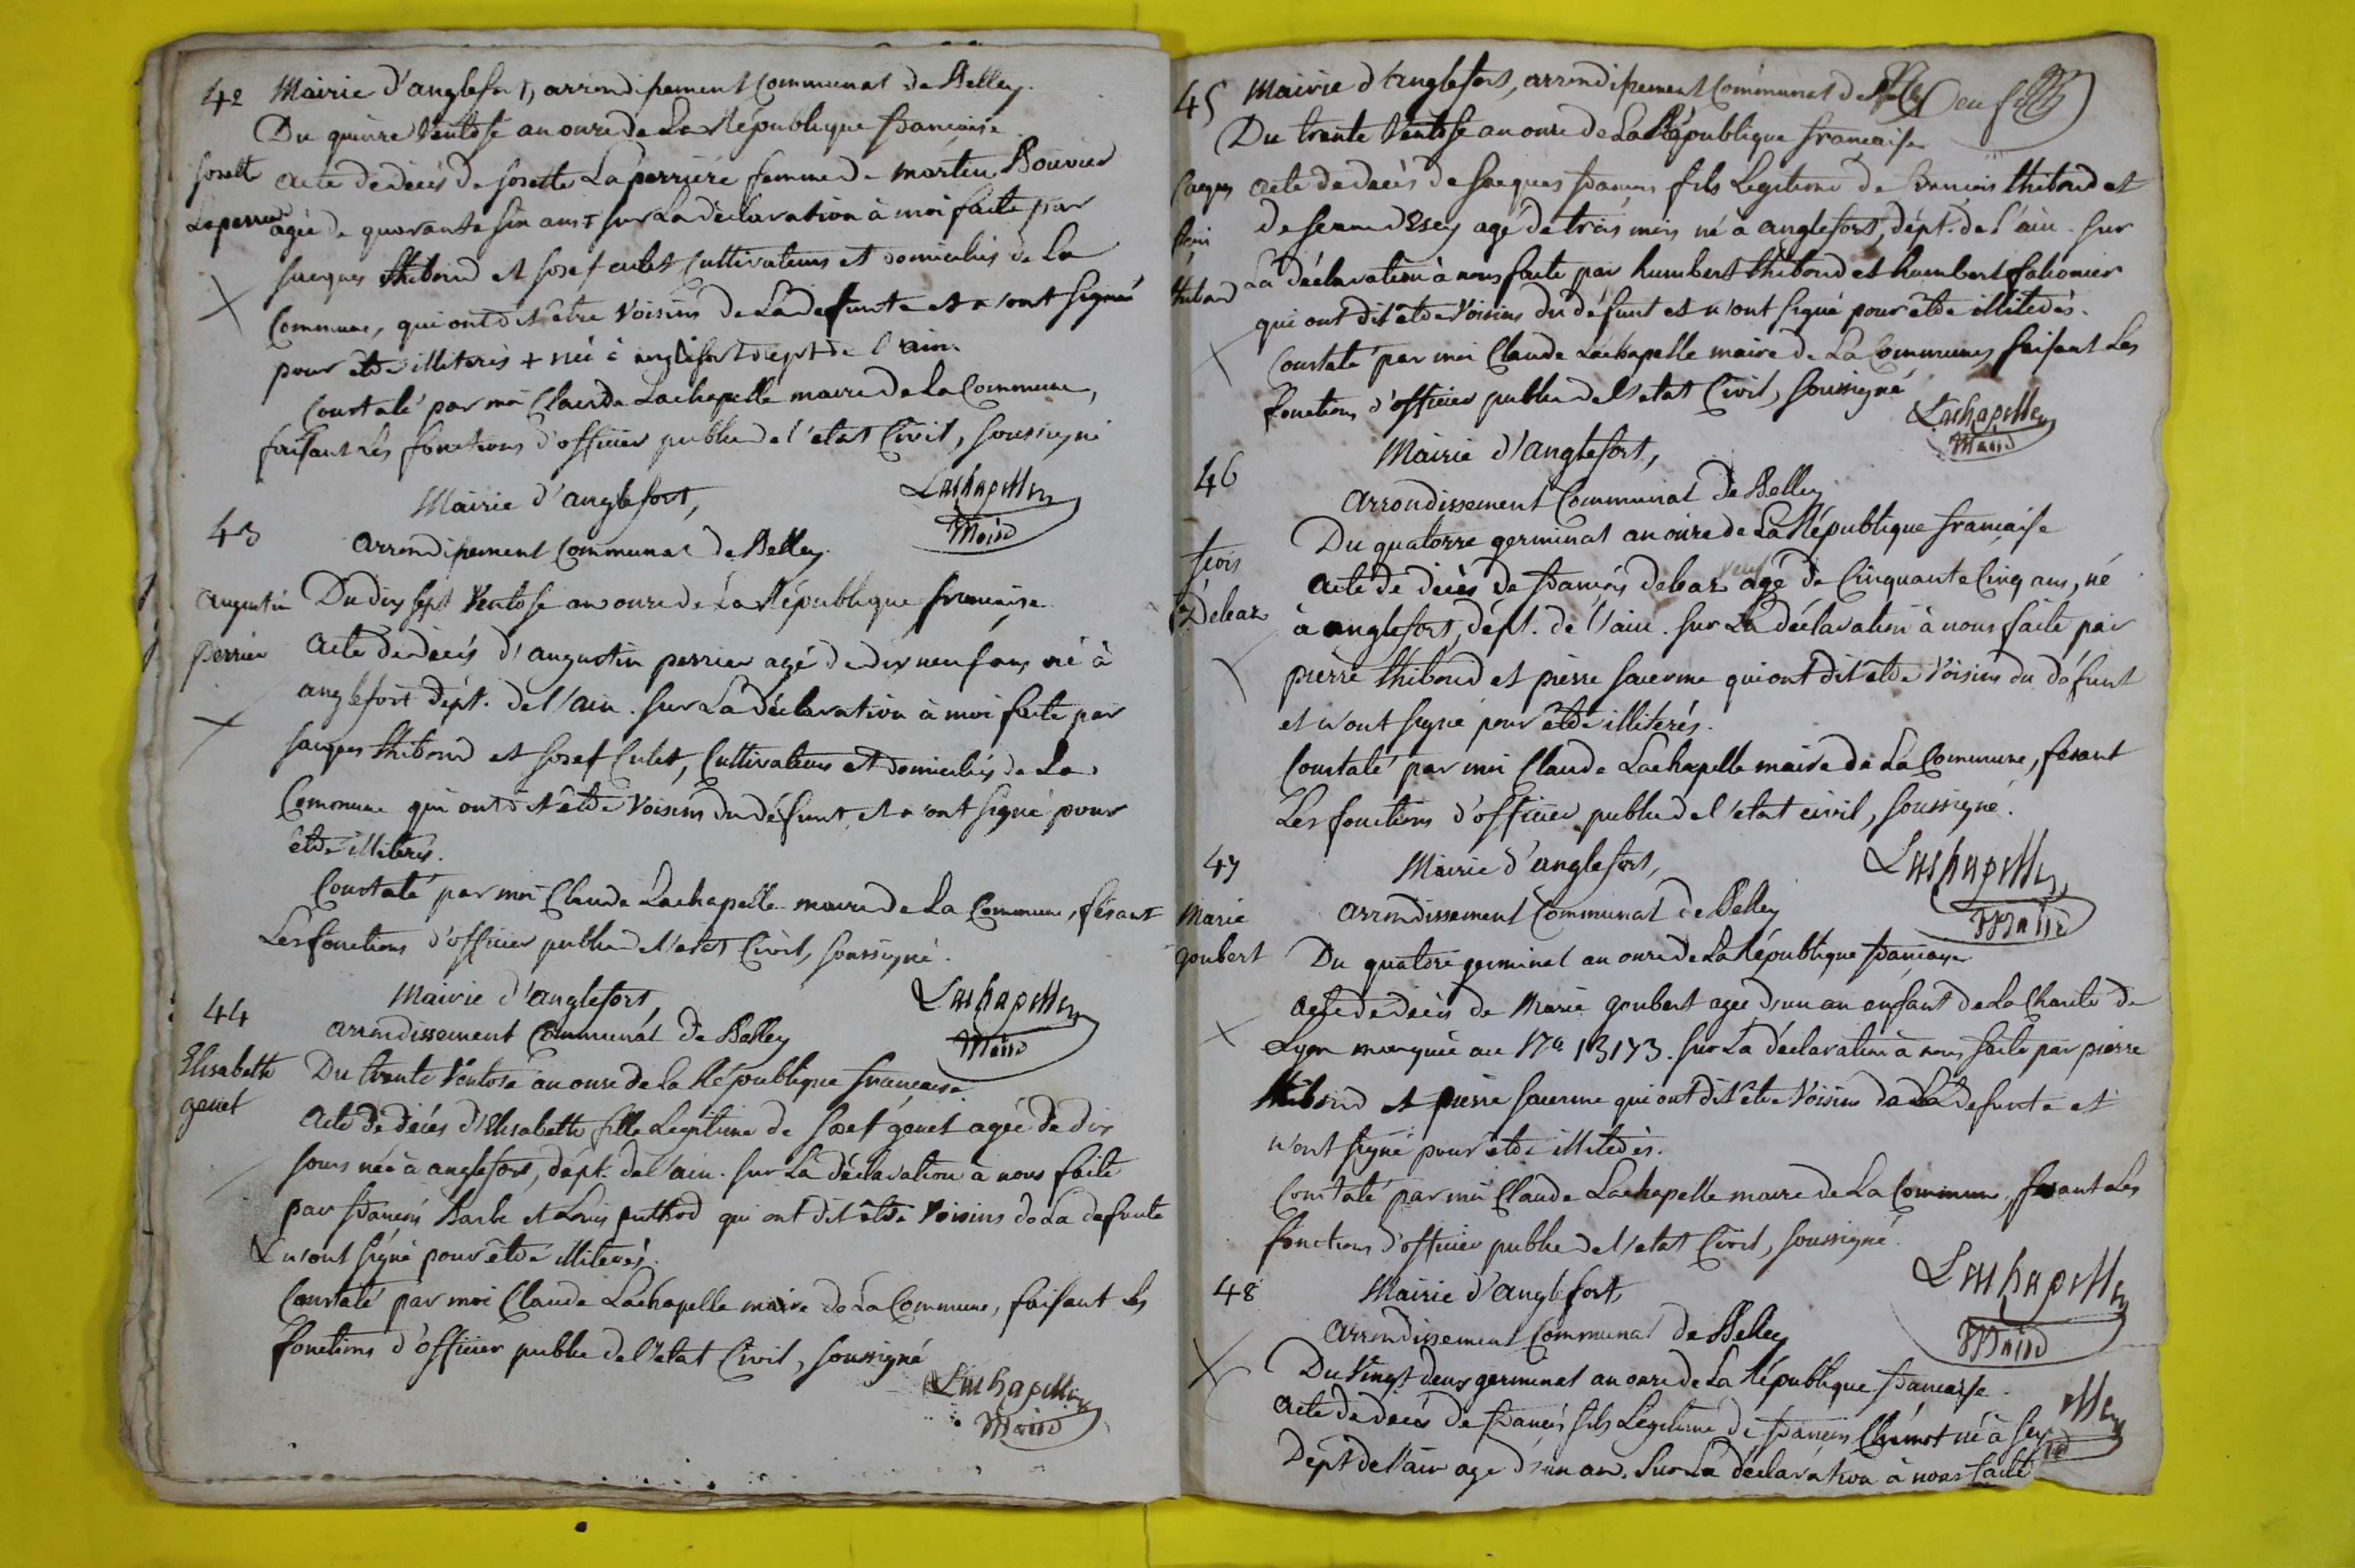 42 Mairie d'anglefort, arrondissement Communal de Belley.
Du quinze Ventose an onze de La République francaise
Josette
Laperriere
Acte de decés de Josette Laperriére femme de martin Bouvier
agée de quarante six ans + sur La déclaration à moi faite par
Jacques thiboud et Josef culet Cultivateurs et domiciliés de La
Commune, qui ont dit être Voisins de La defunte et n'ont signé
pour etre illiterés + née à anglefort dept de l'ain.
Constaté par moi Claude Lachapelle maire de La Commune,
faisant Les fonctions d'officier public de l'etat Civil, soussigné
Lachapelle
Maire
43
Mairie d'anglefort,
arrondissement Communal de Belley.
augustin
perrier
Du dix sept Ventose an onze de La République francaise
Acte de decés d'augustin perrier agé de dix neuf ans né à
anglefort dépt. de l'ain. sur La déclaration à moi faite par
Jacques thiboud et Josef Culet, Cultivateurs et domiciliés de La
Commune qui ont dit etre Voisins du défunt, et n'ont signé pour
etre illiterés.
Constaté par moi Claude Lachapelle maire de La Commune, fesant
Les fonctions d'officier public de l'etat Civil, soussigné.
Lachapelle
Maire
44
Mairie d'anglefort,
arrondissement Communal de Belley
Elisabeth
genet
Du trente Ventose an onze de la République francaise.
Acte de décés d'Elisabeth fille Legitime de Josef genet agée de dix
jours née à anglefort, dépt. de l'ain. sur La déclaration à nous faite
par francois Barbe et Louis puthod qui ont dit être Voisins de La defunte
& n'ont signé pour être illiterés.
Constaté par moi Claude Lachapelle maire de La Commune, faisant les
fonctions d'officier public de l'etat Civil, soussigné
Lachapelle
Maire
45 Mairie d'Anglefort, arrondissement Communal de Belley
Du trente Ventose an onze de La République francaise
Jacques
thiboud
acte de decès de Jacques francois fils Legitime de thiboud et
de Jeanne agé de trois mois né à anglefort, dépt. de l'ain. sur
La déclaration à nous faite par humbert thiboud et humbert
qui ont dit etre Voisins du défunt et n'ont signé pour être illiterés.
Constaté par moi Claude Lachapelle maire de La Commune, faisant Les
fonctions d'officier public de l'etat Civil, soussigné
Lachapelle
Maire
46
Mairie d'anglefort,
arrondissement Communal de Belley
fcois
Delcaz
Du quatorze germinal an onze de La République francaise
Acte de décès de francois delcaz agé de Cinquante Cinq ans, né
à anglefort, dépt. de l'ain. sur La déclaration à nous faite par
pierre thiboud et pierre qui ont dit etre Voisins du défunt
et n'ont signé pour être illiterés.
Constaté par moi Claude Lachapelle maire de La Commune, fesant
Les fonctions d'officier public de l'etat civil, soussigné.
Lachapelle
Maire
47
Mairie d'anglefort,
arrondissement Communal de Belley
Marie
goubert
Du quatorze germinal an onze de La République francaise
Acte de decès de Marie goubert agée d'un an enfant de La Charité de
Lyon marquée au No 13173. sur La déclaration à nous faite par pierre
thiboud et pierre qui ont dit être Voisins de La defunte et
n'ont signé pour etre illiterés.
Constaté par moi Claude Lachapelle maire de La Commune, fesant Les
fonctions d'officier public de l'etat Civil, soussigné.
Lachapelle
Maire
48
Mairie d'anglefort,
Arrondissement Communal de Belley
Du Vingt deux germinal an onze de La République francaise.
Acte de decés de francois fils Legitime de francois né à
Dept de l'ain agé d'un an. Sur La déclaration à nous faite